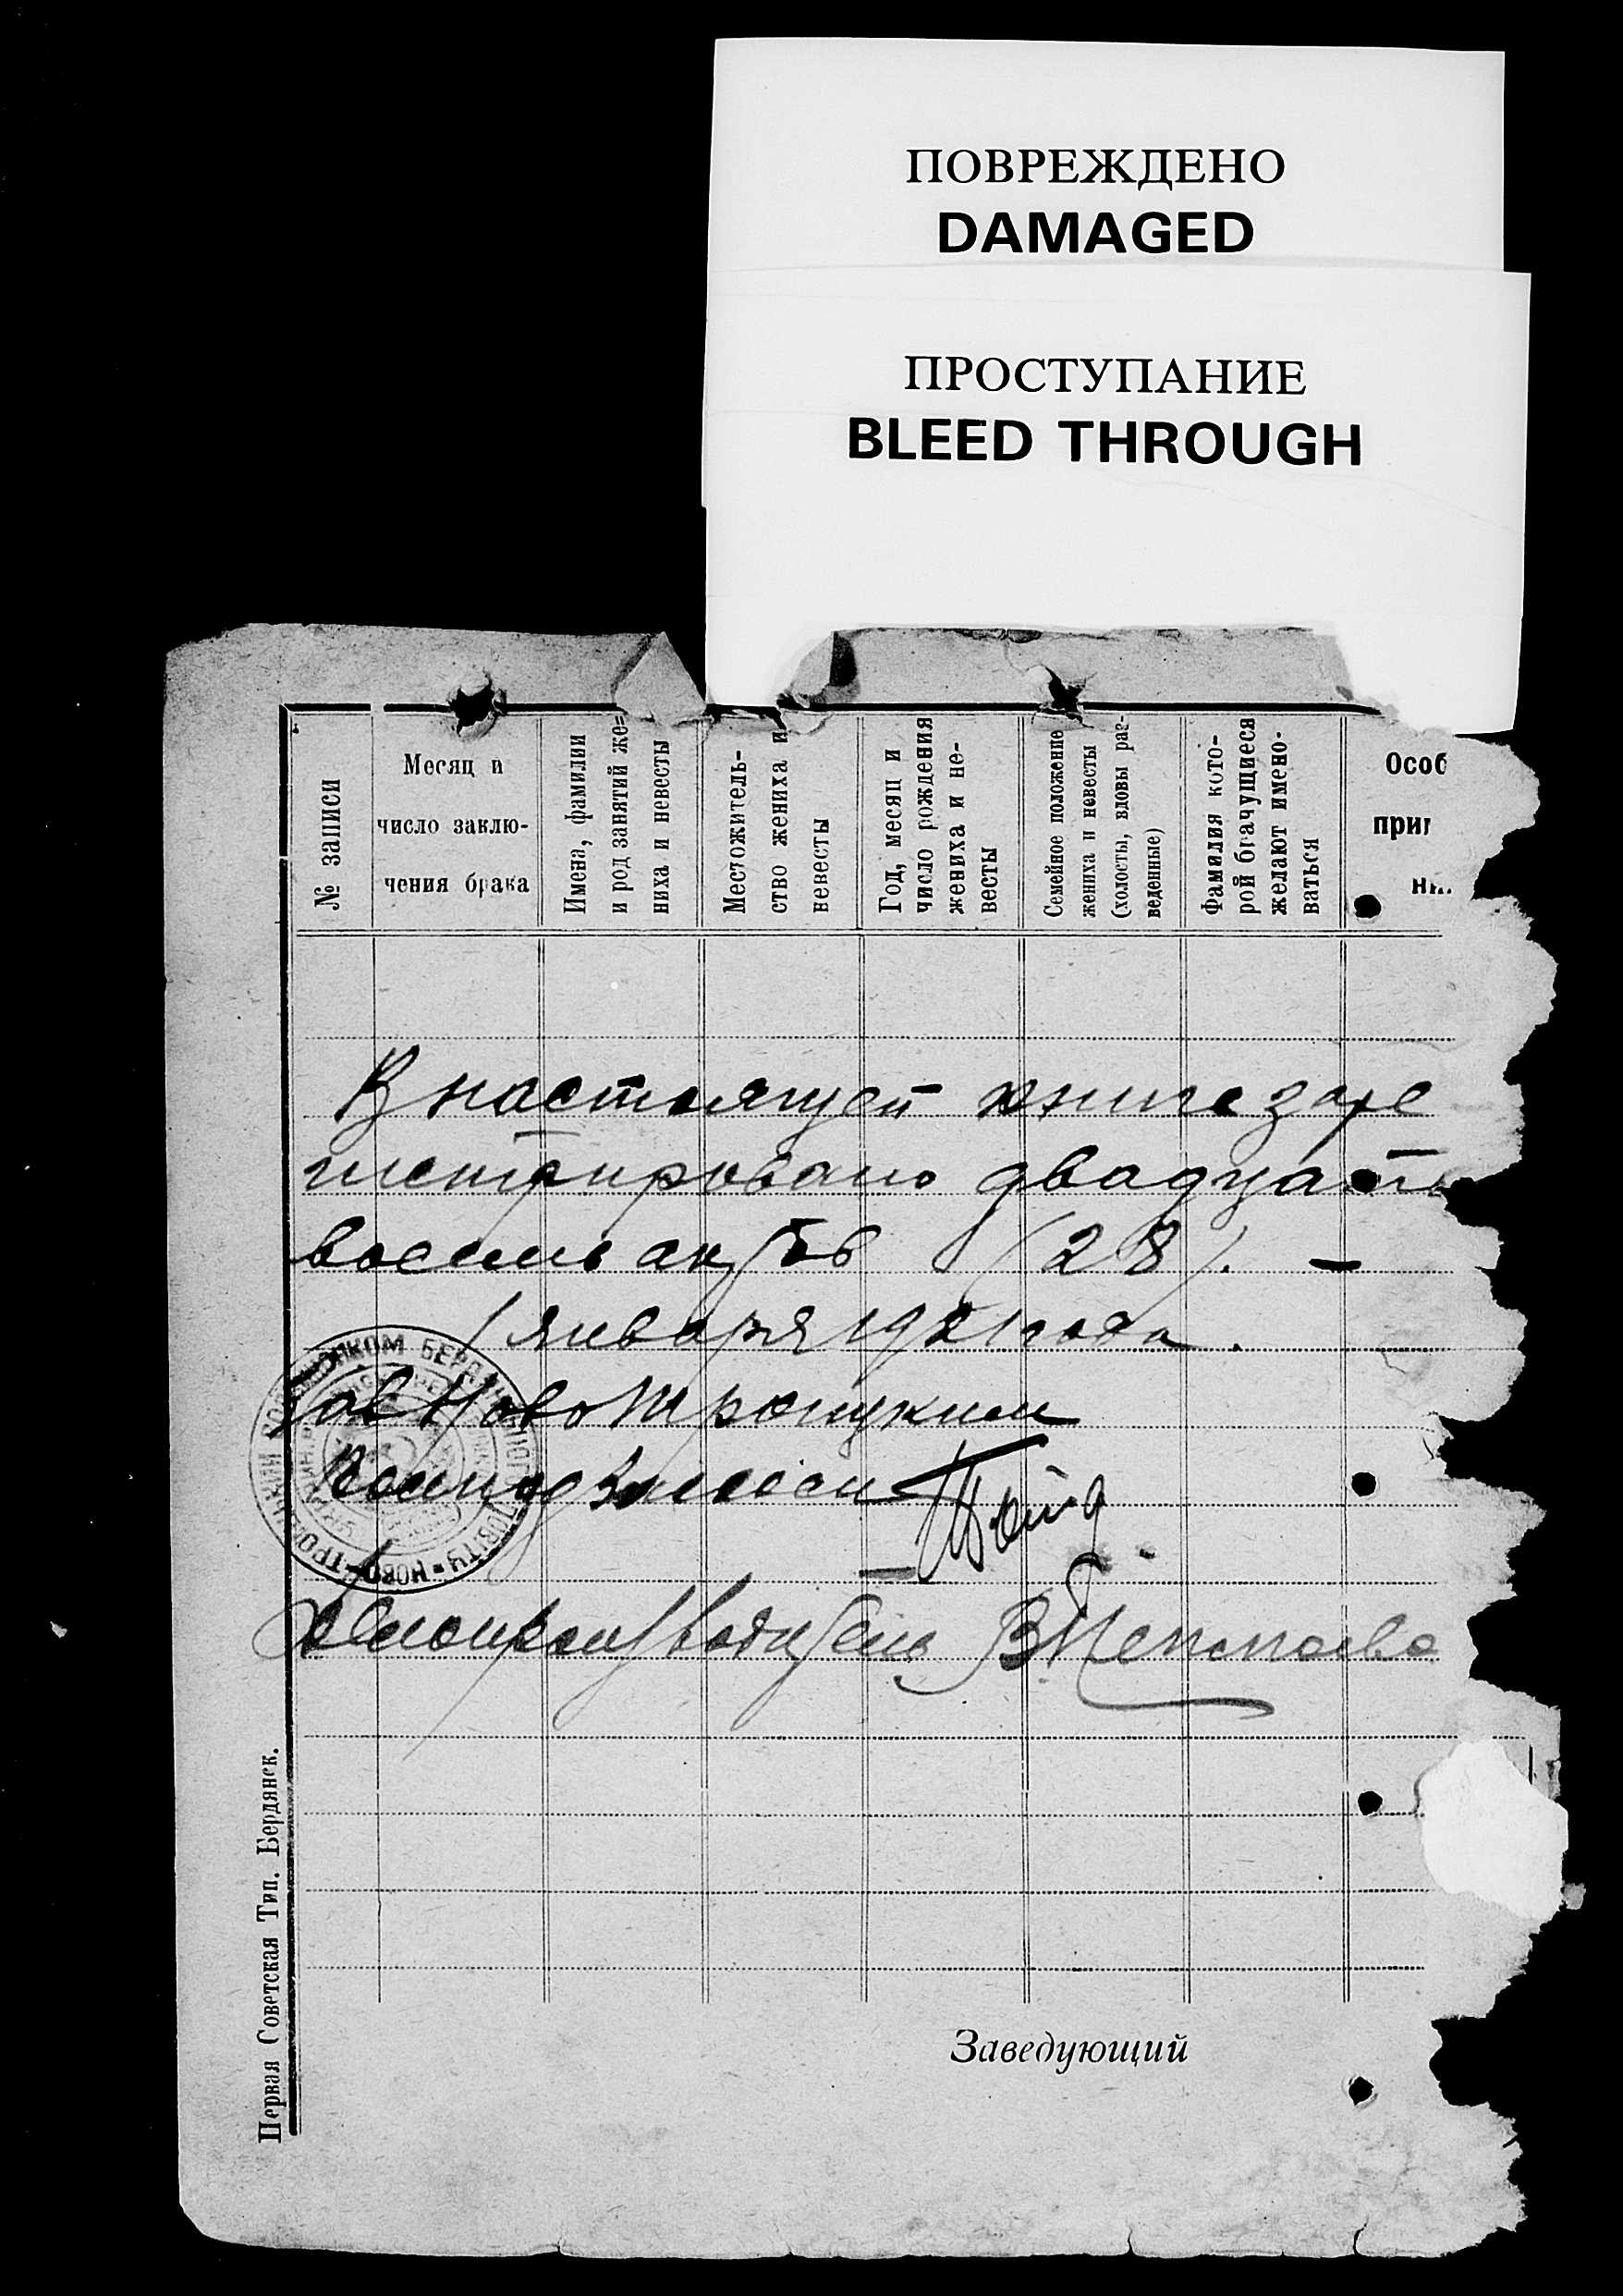 ПОВРЕЖДЕНО
DAMAGED
ПРОСТУПАНИЕ
BLEED THROUGH
№ записи
Месяц и
число заклю-
чения брака
Имена, фамилии
и род занятий же-
ниха и невесты
Местожитель-
ство жениха и
невесты
Год, месяц и
число рождения
жениха и не-
весты
Семейное положение
жениха и невесты
(холосты, вдовы раз-
веденные)
Фамилия кото-
рой брачущиеся
желают имено-
ваться
Особ
при
ни
В настоящей книге заре
гистрировано двадцать
восемь актов (28). —
1 января 1921 года.
Зав Ново Троицким
Делопроизводитель В
Заведующий
Первая Советская Тип. Бердянск.